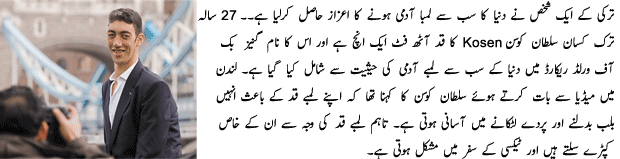 ترکی کے ایک شخص نے دنیا کا سب سے لمبا آدمی ہونے کا اعزاز حاصل کرلیا ہے۔۔ 27 سالہ
ترک کسان سلطان کوسن Kosen کا قد آٹھ فٹ ایک انچ ہے اور اس کا نام گنیز بک
آف ورلڈ ریکارڈ میں دنیا کے سب سے لمبے آدمی کی حیثیت سے شامل کیا گیا ہے۔ لندن
میں میڈیا سے بات کرتے ہوئے سلطان کوسن کا کہنا تھا کہ اپنے لمبے قد کے باعث انہیں
بلب بدلنے اور پردے لٹکانے میں آسانی ہوتی ہے۔ تاہم لمبے قد کی وجہ سے ان کے خاص
کپڑے سلتے ہیں اور ٹیکسی کے سفر میں مشکل ہوتی ہے۔